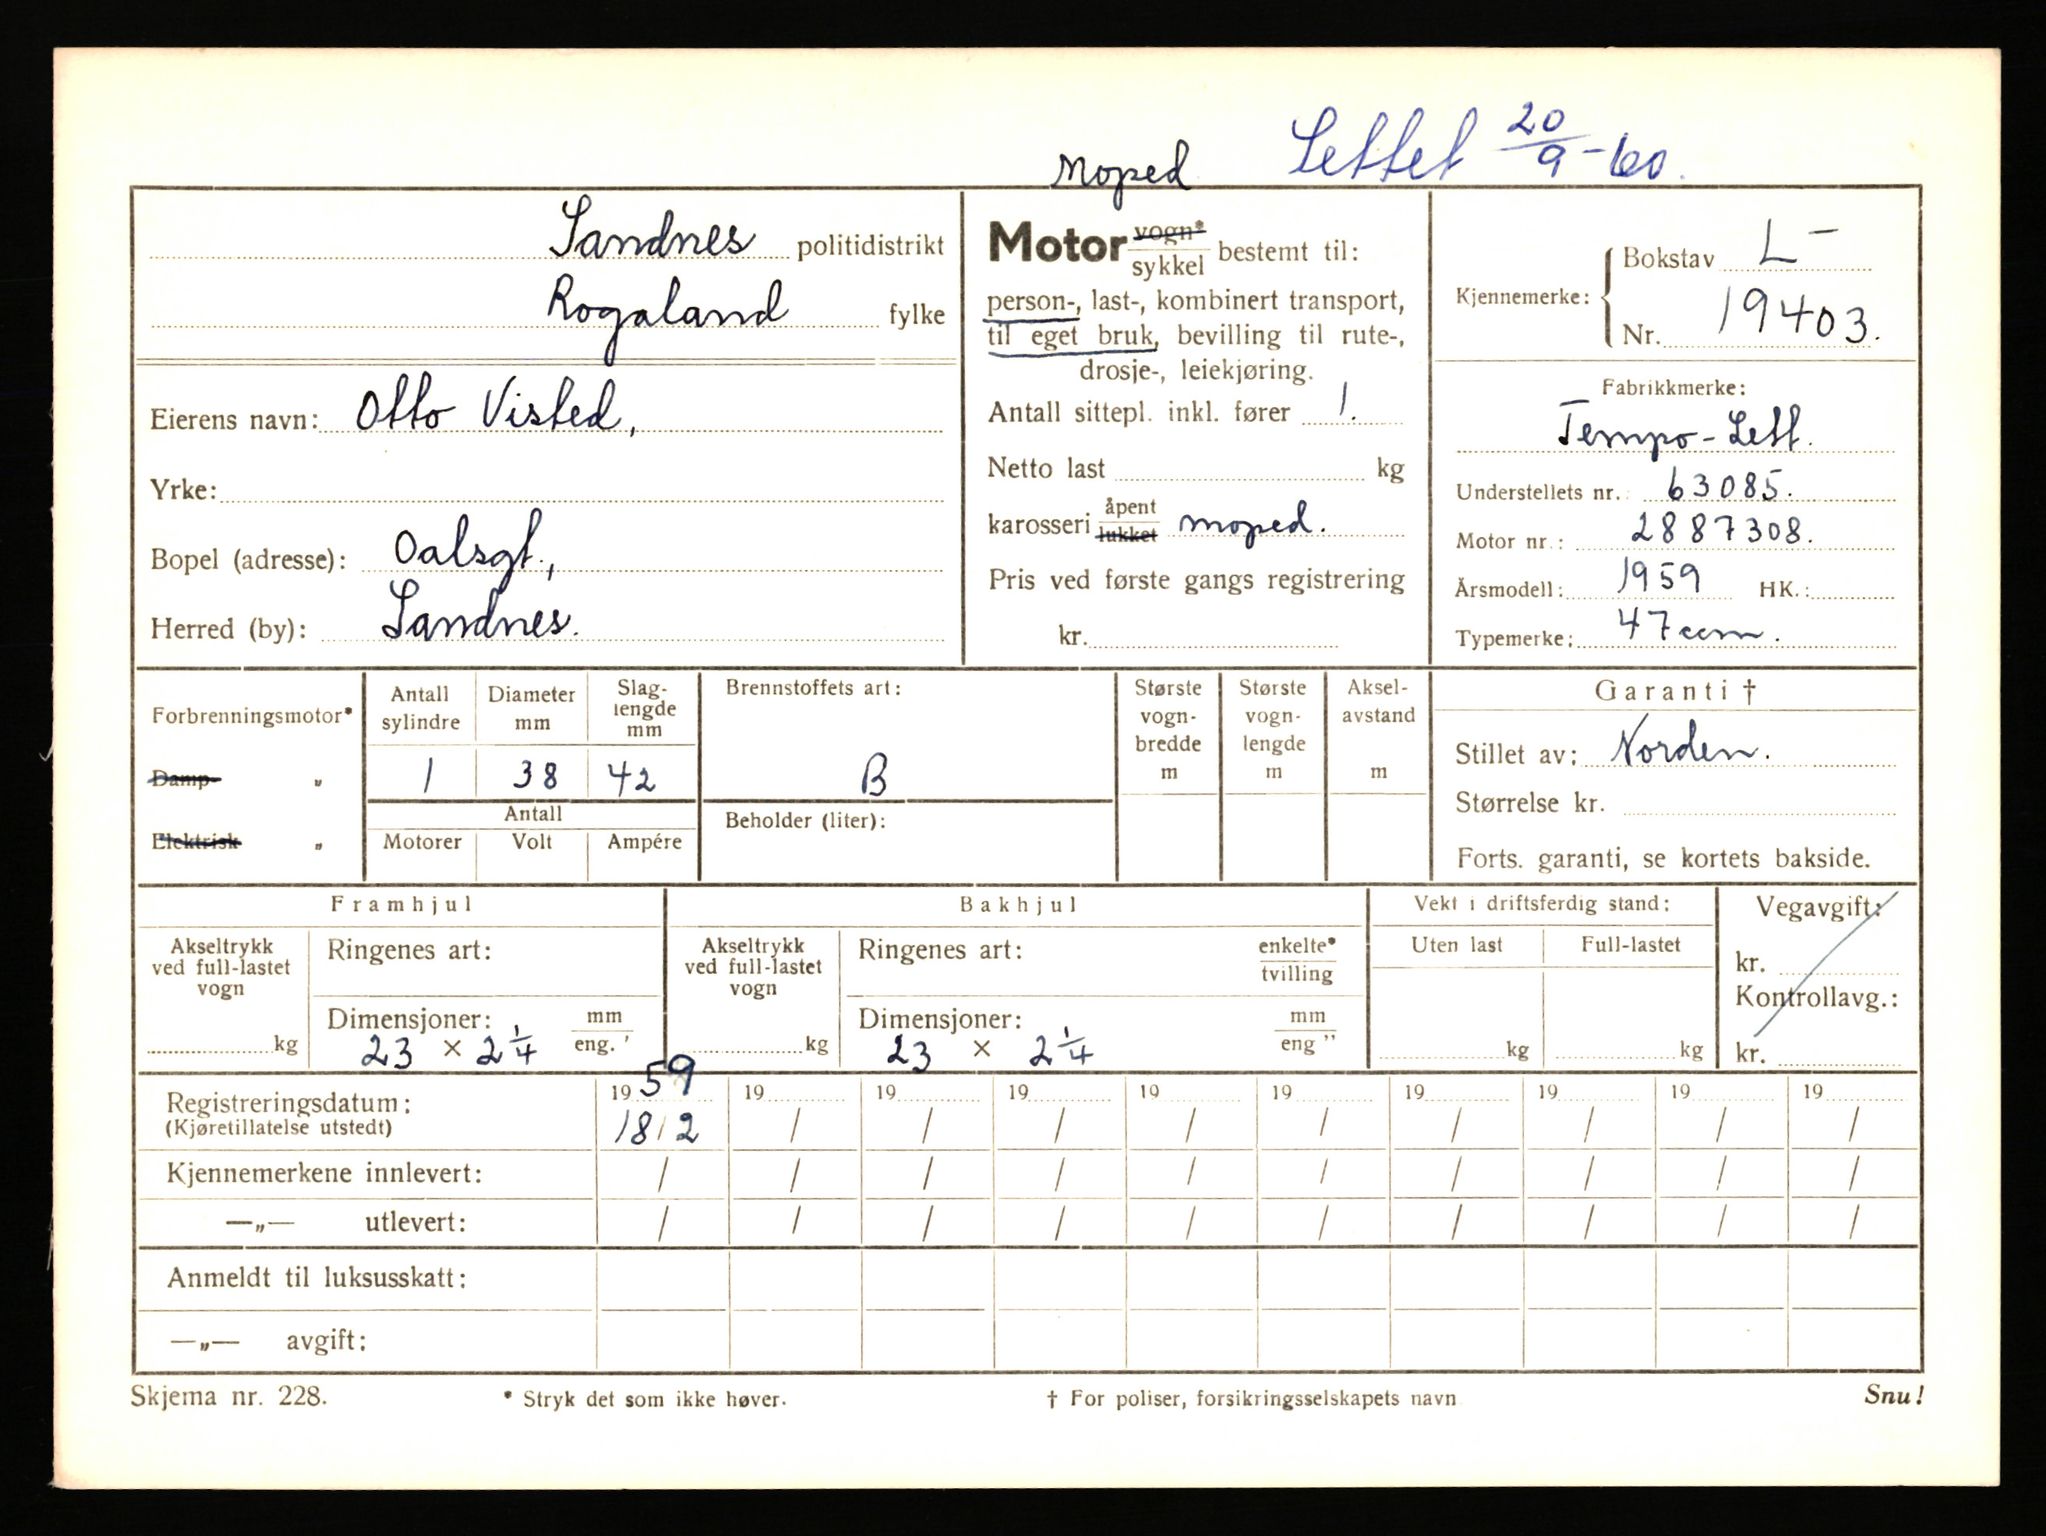 Moped Lettet 20/9-60.
Sandnes politidistrikt
Rogaland fylke
Eierens navn: Otto Visted,
Yrke:
Bopel (adresse): Oalsgt.,
Herred (by): Sandnes.
Motor vogn* / sykkel bestemt til:
person-, last-, kombinert transport,
til eget bruk, bevilling til rute-,
drosje-, leiekjøring.
Antall sittepl. inkl. fører 1.
Netto last kg
karosseri åpent / lukket moped.
Pris ved første gangs registrering
kr.
Kjennemerke: Bokstav L-
Nr. 19403.
Fabrikkmerke:
Tempo-Lett.
Understellets nr.: 63085.
Motor nr.: 2887308.
Årsmodell: 1959 HK.:
Typemerke: 47 ccm.
Forbrenningsmotor*
Damp- „
Elektrisk „
Antall sylindre Diameter mm Slaglengde mm
1 38 42
Antall
Motorer Volt Ampére
Brennstoffets art:
B
Beholder (liter):
Største vogn-bredde m
Største vogn-lengde m
Aksel-avstand m
Garanti †
Stillet av: Norden.
Størrelse kr.
Forts. garanti, se kortets bakside.
Framhjul
Akseltrykk ved full-lastet vogn
kg
Ringenes art:
Dimensjoner: mm / eng. '
23 × 2 1/4
Bakhjul
Akseltrykk ved full-lastet vogn
kg
Ringenes art: enkelte* / tvilling
Dimensjoner: mm / eng "
23 × 2 1/4
Vekt i driftsferdig stand:
Uten last Full-lastet
kg kg
Vegavgift:
kr.
Kontrollavg.:
kr.
Registreringsdatum: 1959 19 19 19 19 19 19 19 19 19
(Kjøretillatelse utstedt) 18/2 / / / / / / / / /
Kjennemerkene innlevert: / / / / / / / / / /
—„— utlevert: / / / / / / / / / /
Anmeldt til luksusskatt:
—„— avgift:
Skjema nr. 228. * Stryk det som ikke høver. † For poliser, forsikringsselskapets navn Snu!